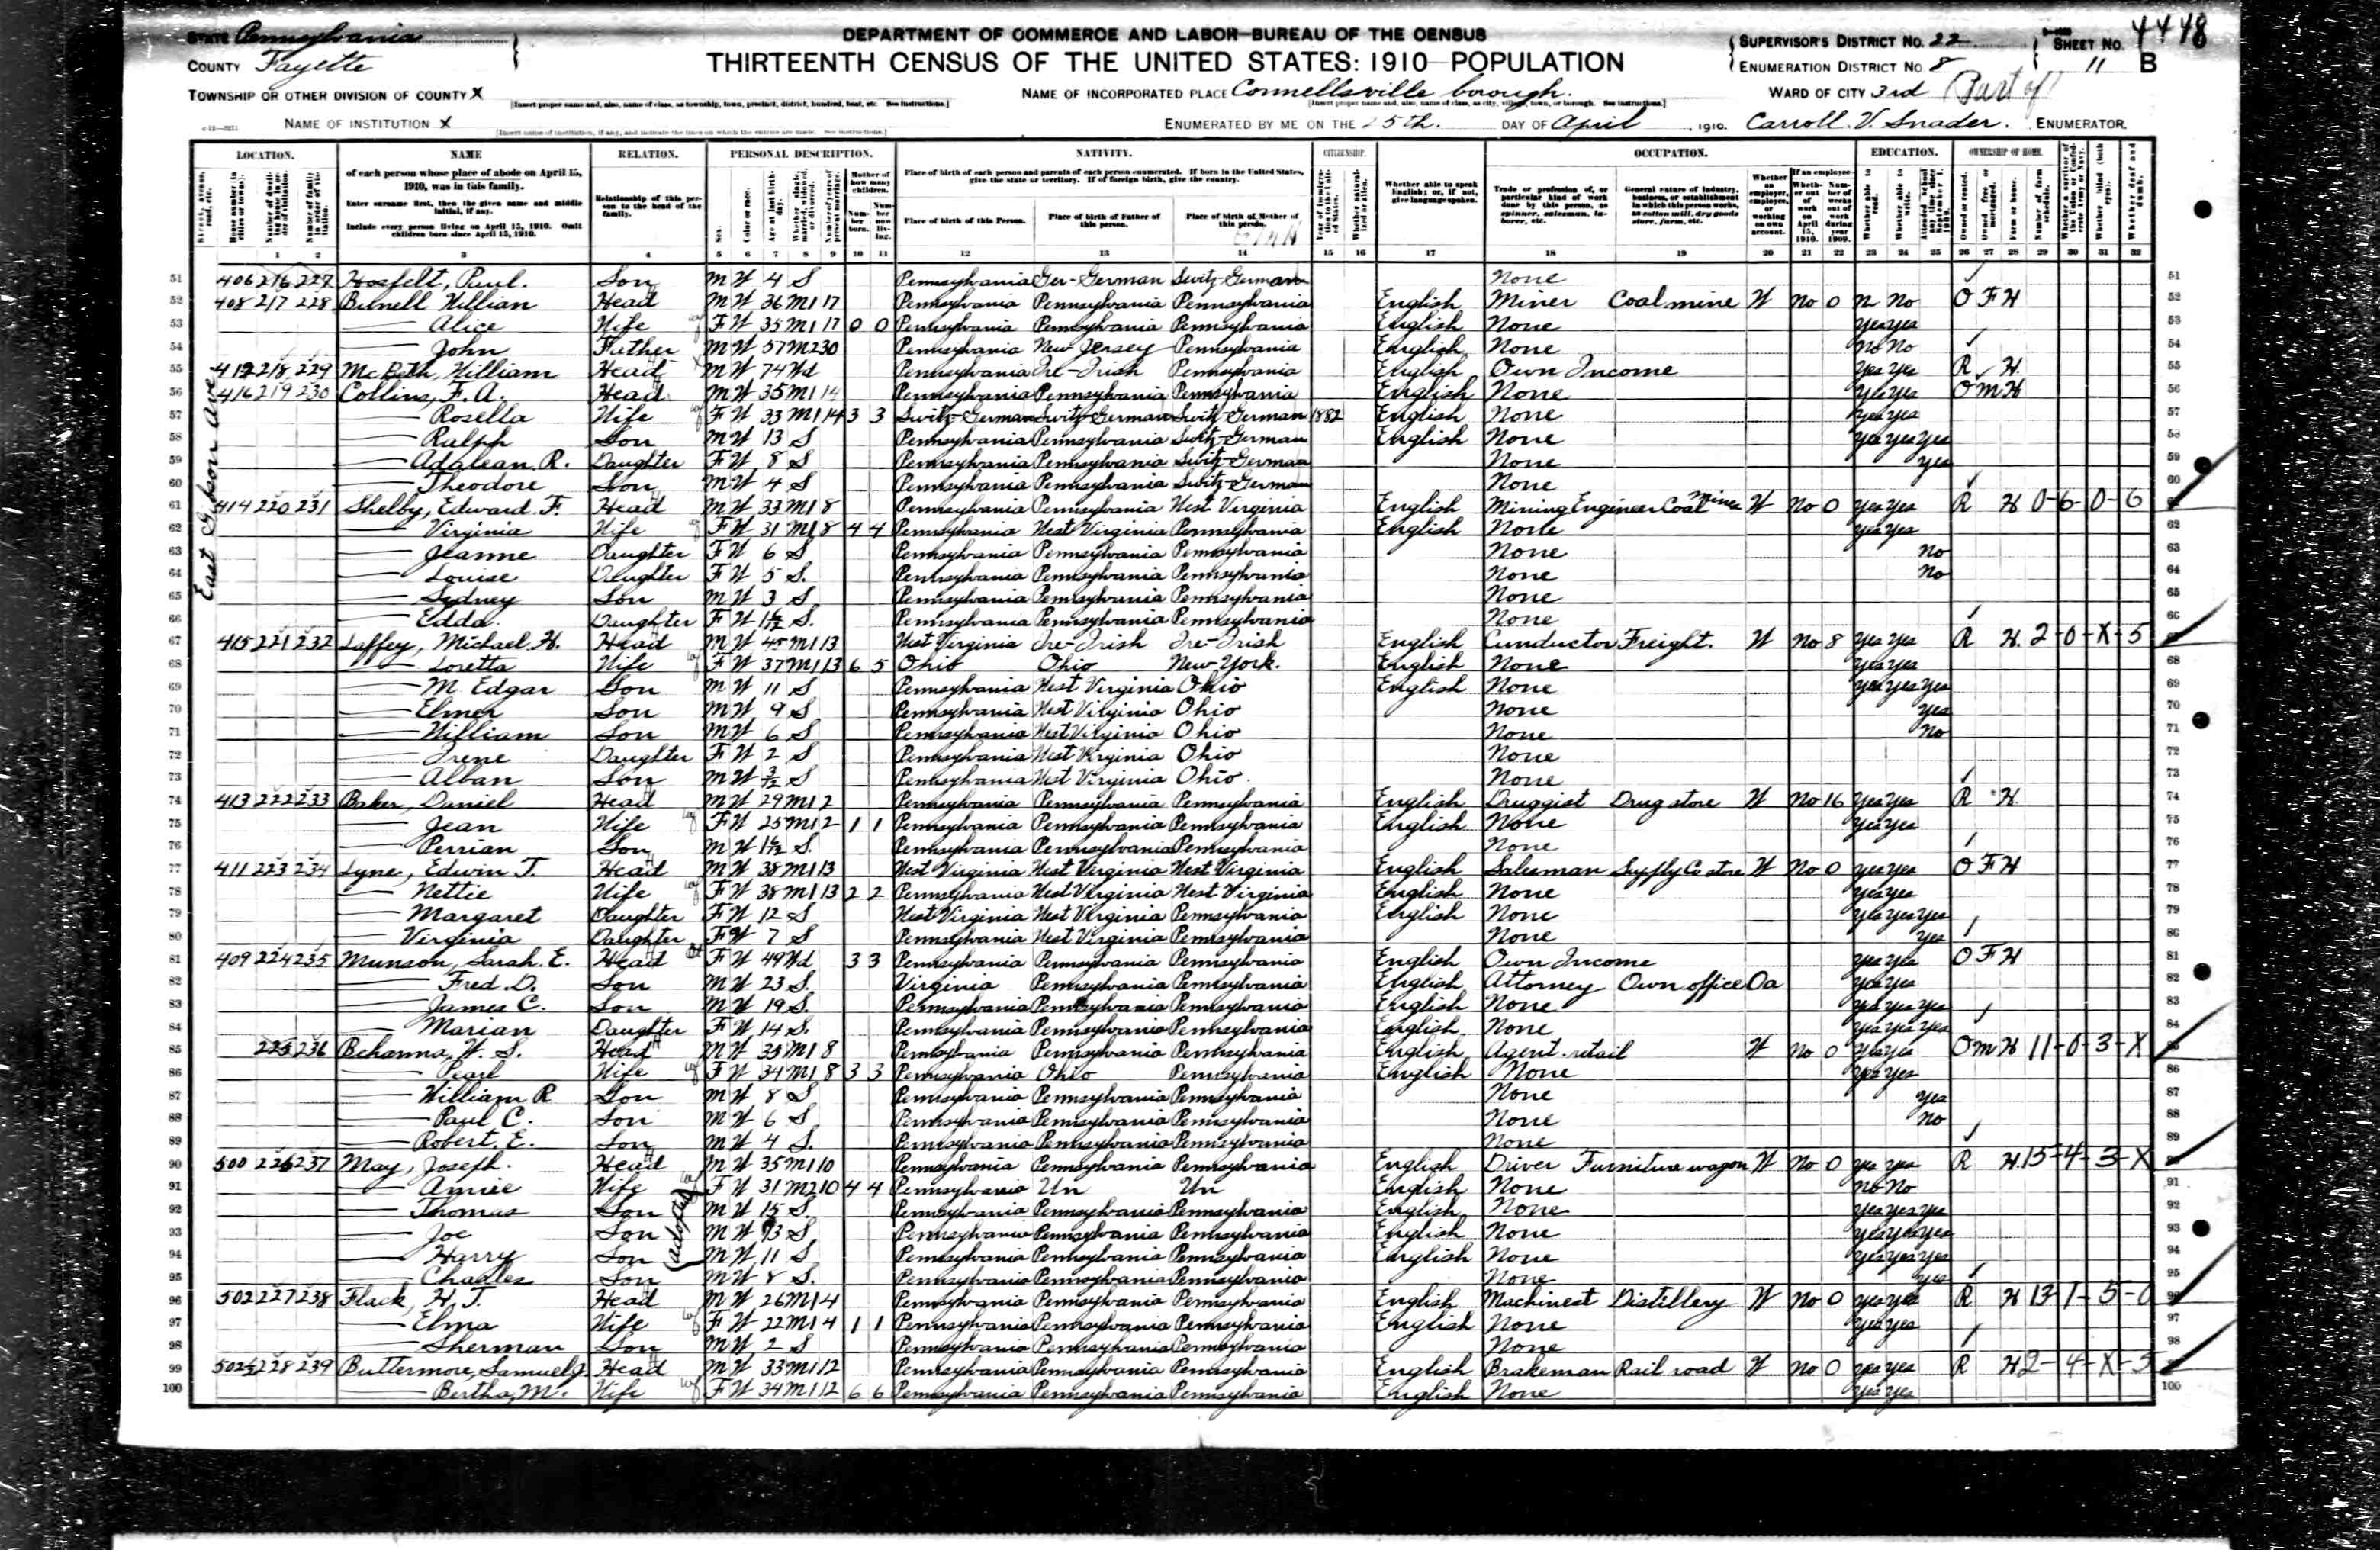 4448
STATE Pennsylvania
COUNTY Fayette
TOWNSHIP OR OTHER DIVISION OF COUNTY X
NAME OF INSTITUTION X
DEPARTMENT OF COMMERCE AND LABOR—BUREAU OF THE CENSUS
THIRTEENTH CENSUS OF THE UNITED STATES: 1910—POPULATION
NAME OF INCORPORATED PLACE Connellsville borough.
ENUMERATED BY ME ON THE 25th. DAY OF April, 1910. Carroll V. Snader. ENUMERATOR.
SUPERVISOR'S DISTRICT NO. 22 SHEET NO.
ENUMERATION DISTRICT NO 8 11 B
WARD OF CITY 3rd (Part of)
LOCATION. NAME RELATION. PERSONAL DESCRIPTION. NATIVITY. CITIZENSHIP. OCCUPATION. EDUCATION. OWNERSHIP OF HOME.
of each person whose place of abode on April 15, 1910, was in this family.
Enter surname first, then the given name and middle initial, if any.
Include every person living on April 15, 1910. Omit children born since April 15, 1910.
Relationship of this person to the head of the family.
Place of birth of each person and parents of each person enumerated. If born in the United States, give the state or territory. If of foreign birth, give the country.
Place of birth of this Person. Place of birth of Father of this person. Place of birth of Mother of this person.
Whether able to speak English; or, if not, give language spoken.
Trade or profession of, or particular kind of work done by this person, as spinner, salesman, laborer, etc.
General nature of industry, business, or establishment in which this person works, as cotton mill, dry goods store, farm, etc.
East Gibson Ave
51 406 216 227 Hosfelt, Paul. Son M W 4 S Pennsylvania Ger-German Switz-German None
52 408 217 228 Head M W 36 M1 17 Pennsylvania Pennsylvania Pennsylvania English Miner Coal mine W No 0 No O F H
53 Alice Wife F W 35 M1 17 0 0 Pennsylvania Pennsylvania Pennsylvania English None yes yes
54 John Father M W 57 M2 30 Pennsylvania New Jersey Pennsylvania English None No No
55 412 218 229 William Head M W 74 Wd Pennsylvania Ire-Irish Pennsylvania English Own Income yes yes R H.
56 416 219 230 Collins, F. A. Head M W 35 M1 14 Pennsylvania Pennsylvania Pennsylvania English None yes yes O M H
57 Rosella Wife F W 33 M1 14 3 3 Switz-German Switz-German Switz-German 1882 English None yes yes
58 Ralph Son M W 13 S Pennsylvania Pennsylvania Switz-German English None yes yes yes
59 Adalean R. Daughter F W 8 S Pennsylvania Pennsylvania Switz-German None yes
60 Theodore Son M W 4 S Pennsylvania Pennsylvania Switz-German None
61 414 220 231 Shelby, Edward F. Head M W 33 M1 8 Pennsylvania Pennsylvania West Virginia English Mining Engineer Coal Mine W No 0 yes yes R H 0-6-0-6
62 Virginia Wife F W 31 M1 8 4 4 Pennsylvania West Virginia Pennsylvania English None yes yes
63 Jeanne Daughter F W 6 S Pennsylvania Pennsylvania Pennsylvania None No
64 Louise Daughter F W 5 S. Pennsylvania Pennsylvania Pennsylvania None No
65 Sydney Son M W 3 S Pennsylvania Pennsylvania Pennsylvania None
66 Edda. Daughter F W S. Pennsylvania Pennsylvania Pennsylvania None
67 415 221 232 Laffey, Michael H. Head M W 45 M1 13 West Virginia Ire-Irish Ire-Irish English Cunductor Freight. W No 8 yes yes R H. 2-0-X-5
68 Loretta Wife F W 37 M1 13 6 5 Ohio Ohio New York. English None yes yes
69 M. Edgar Son M W 11 S Pennsylvania West Virginia Ohio English None yes yes yes
70 Elmer Son M W 9 S Pennsylvania West Virginia Ohio None yes
71 William Son M W 6 S Pennsylvania West Virginia Ohio None No
72 Irene Daughter F W 2 S Pennsylvania West Virginia Ohio None
73 Alban Son M W 3/12 S Pennsylvania West Virginia Ohio. None
74 413 222 233 Baker, Daniel Head M W 29 M1 2 Pennsylvania Pennsylvania Pennsylvania English Druggist Drug store W No 16 yes yes R H.
75 Jean Wife F W 25 M1 2 1 1 Pennsylvania Pennsylvania Pennsylvania English None yes yes
76 Perrian Son M W S. Pennsylvania Pennsylvania Pennsylvania None
77 411 223 234 Lyne, Edwin T. Head M W 38 M1 13 West Virginia West Virginia West Virginia English Salesman Supply Co store W No 0 yes yes O F H
78 Nettie Wife F W 38 M1 13 2 2 Pennsylvania West Virginia West Virginia English None yes yes
79 Margaret Daughter F W 12 S West Virginia West Virginia Pennsylvania English None yes yes yes
80 Virginia Daughter F W 7 S Pennsylvania West Virginia Pennsylvania None yes
81 409 224 235 Munson, Sarah. E. Head F W 49 Wd 3 3 Pennsylvania Pennsylvania Pennsylvania English Own Income yes yes O F H
82 Fred. D. Son M W 23 S. Virginia Pennsylvania Pennsylvania English Attorney Own office Oa yes yes
83 James C. Son M W 19 S. Pennsylvania Pennsylvania Pennsylvania English None yes yes yes
84 Marian Daughter F W 14 S. Pennsylvania Pennsylvania Pennsylvania English None yes yes yes
85 225 236 Behanna, W. S. Head M W 35 M1 8 Pennsylvania Pennsylvania Pennsylvania English Agent-retail W No 0 yes yes O M H 11-0-3-X
86 Pearl Wife F W 34 M1 8 3 3 Pennsylvania Ohio Pennsylvania English None yes yes
87 William R Son M W 8 S Pennsylvania Pennsylvania Pennsylvania None yes
88 Paul C. Son M W 6 S Pennsylvania Pennsylvania Pennsylvania None No
89 Robert. E. Son M W 4 S. Pennsylvania Pennsylvania Pennsylvania None
90 500 226 237 May, Joseph. Head M W 35 M1 10 Pennsylvania Pennsylvania Pennsylvania English Driver Furniture wagon W No 0 yes yes R H 15-4-3-X
91 Annie Wife F W 31 M2 10 4 4 Pennsylvania Un Un English None no No
92 Thomas Son (adopted) M W 15 S. Pennsylvania Pennsylvania Pennsylvania English None yes yes yes
93 Joe Son M W 13 S Pennsylvania Pennsylvania Pennsylvania English None yes yes yes
94 Harry Son M W 11 S Pennsylvania Pennsylvania Pennsylvania English None yes yes yes
95 Charles Son M W 8 S. Pennsylvania Pennsylvania Pennsylvania None yes
96 502 227 238 Flack, H. T. Head M W 26 M1 4 Pennsylvania Pennsylvania Pennsylvania English Machinest Distillery W No 0 yes yes R H 13-1-5-0
97 Elma Wife F W 22 M1 4 1 1 Pennsylvania Pennsylvania Pennsylvania English None yes yes
98 Sherman Son M W 2 S Pennsylvania Pennsylvania Pennsylvania None
99 502½ 228 239 Buttermore, Samuel J. Head M W 33 M1 12 Pennsylvania Pennsylvania Pennsylvania English Brakeman Rail road W No 0 yes yes R H 2-4-X-5
100 Bertha, M. Wife F W 34 M1 12 6 6 Pennsylvania Pennsylvania Pennsylvania English None yes yes